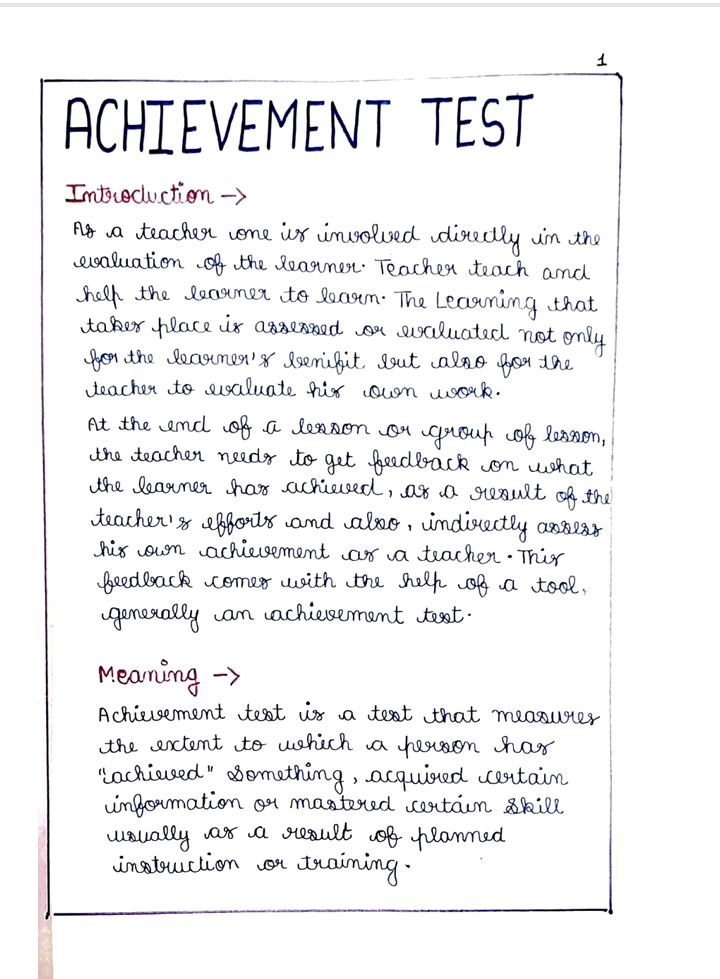 1
ACHIEVEMENT TEST
Introduction →
As a teacher one is involved directly in the
evaluation of the learner. Teacher teach and
help the learner to learn. The Learning that
takes place is assessed or evaluated not only
for the learner's benifit but also for the
teacher to evaluate his own work.
At the end of a lesson or group of lesson,
the teacher needs to get feedback on what
the learner has achieved, as a result of the
teacher's efforts and also, indirectly assess
his own achievement as a teacher. This
feedback comes with the help of a tool,
generally an achievement test.
Meaning →
Achievement test is a test that measures
the extent to which a person has
"achieved" something, acquired certain
information or mastered certain skill
usually as a result of planned
instruction or training.